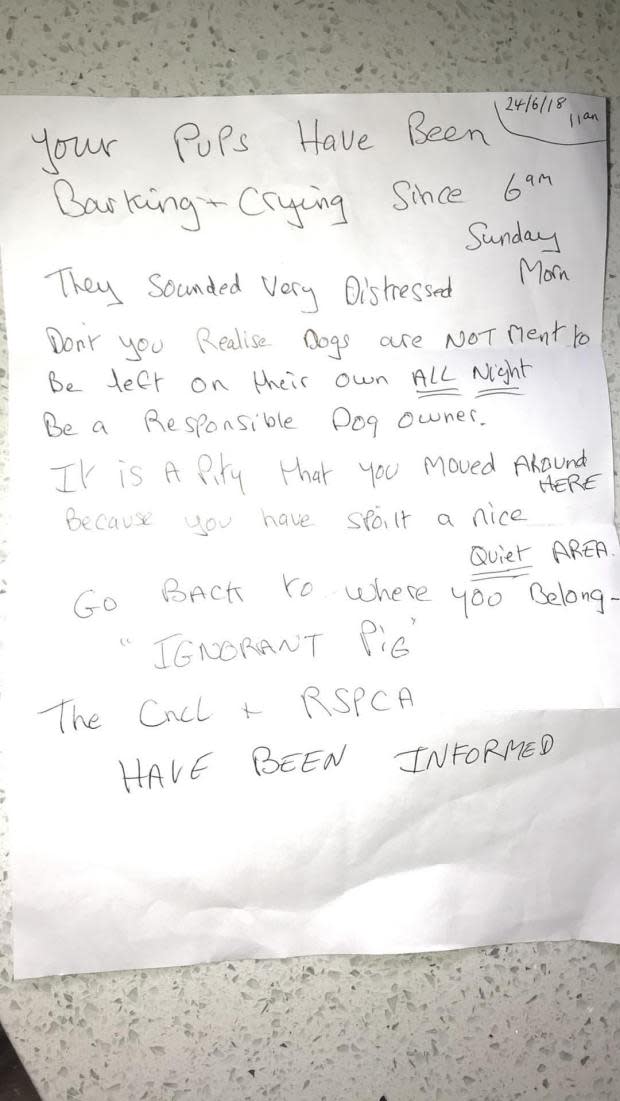 24/6/18
11am
Your Pups Have Been
Barking + Crying Since 6am
Sunday
Morn
They Sounded Very Distressed
Don't you Realise Dogs are NOT Ment to
Be left on their own ALL Night
Be a Responsible Dog owner.
It is A Pity that you Moved ARound
HERE
Because you have spoilt a nice
Quiet AREA.
GO BACK to where you Belong-
"IGNORANT PiG"
The Cncl + RSPCA
HAVE BEEN INFORMED